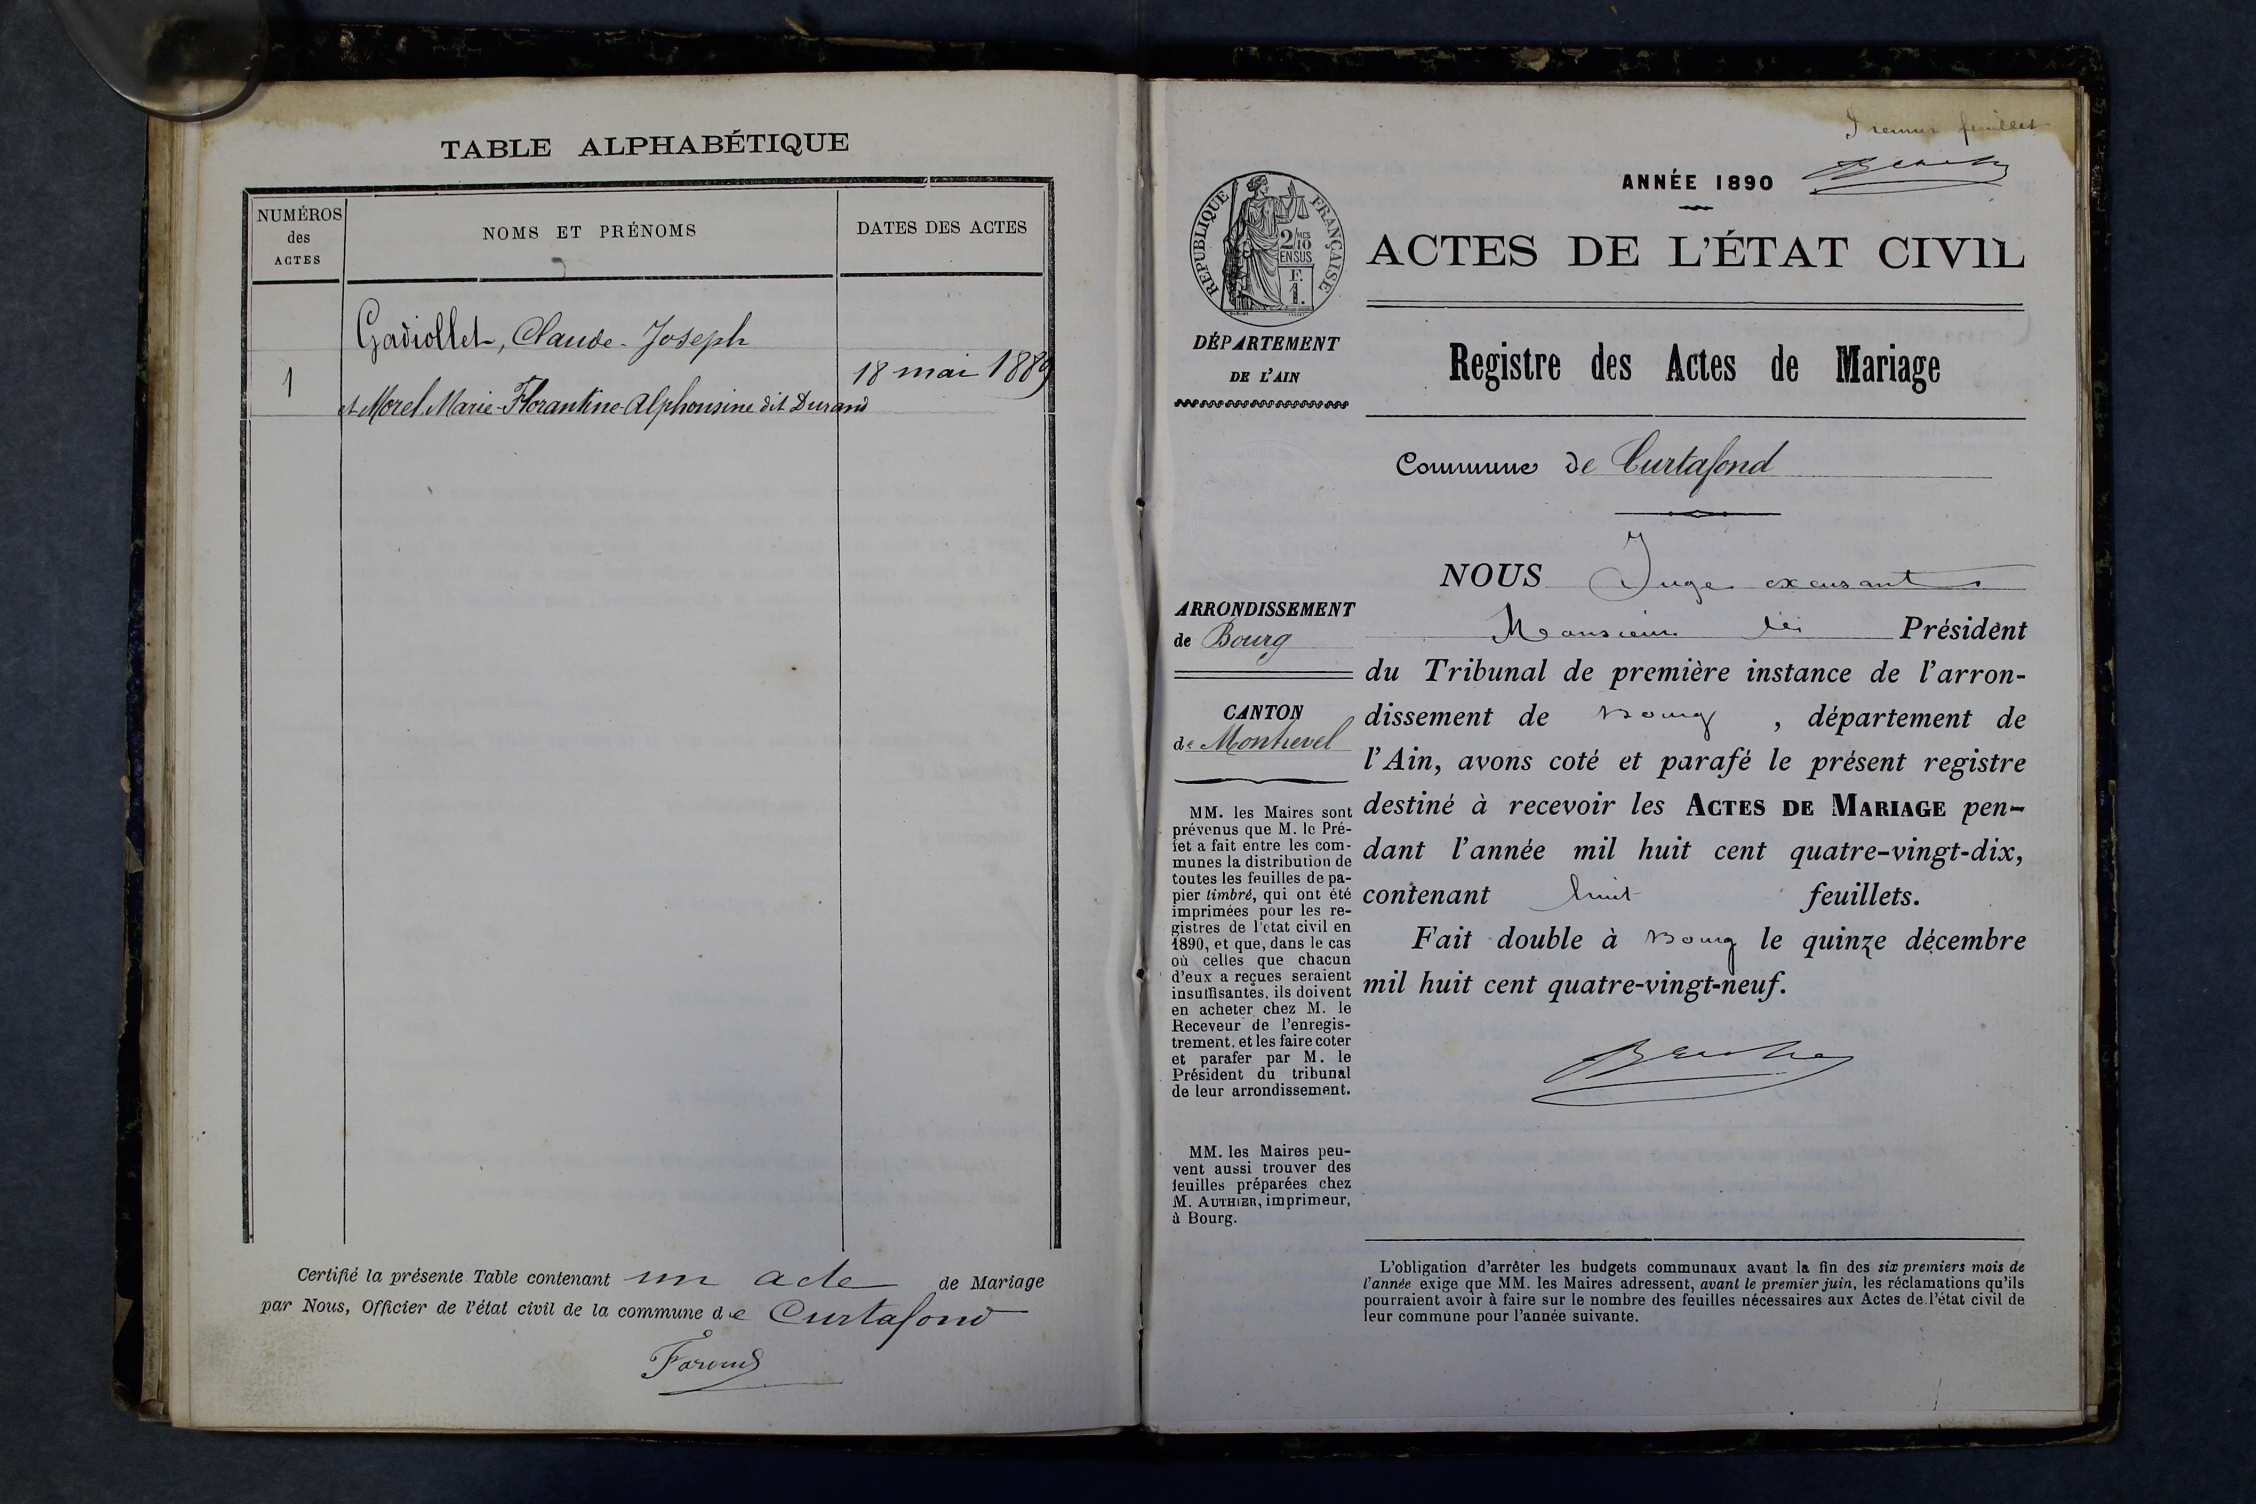 TABLE ALPHABÉTIQUE
NUMÉROS
des
ACTES
NOMS ET PRÉNOMS
DATES DES ACTES
Gadiollet, Claude-Joseph
1
18 mai 1889
et Morel Marie-Florantine Alphonsine dit Durand
Certifié la présente Table contenant un acte de Mariage
par Nous, Officier de l'état civil de la commune de Curtafond
Premier feuillet
ANNÉE 1890
RÉPUBLIQUE FRANÇAISE
2/10
EN SUS
F.
1.
ACTES DE L'ÉTAT CIVIL
DÉPARTEMENT
DE L'AIN
Registre des Actes de Mariage
Commune de Curtafond
ARRONDISSEMENT
de Bourg
CANTON
de Montrevel
MM. les Maires sont
prévenus que M. le Pré-
fet a fait entre les com-
munes la distribution de
toutes les feuilles de pa-
pier timbré, qui ont été
imprimées pour les re-
gistres de l'état civil en
1890, et que, dans le cas
où celles que chacun
d'eux a reçues seraient
insuffisantes, ils doivent
en acheter chez M. le
Receveur de l'enregis-
trement, et les faire coter
et parafer par M. le
Président du tribunal
de leur arrondissement.
MM. les Maires peu-
vent aussi trouver des
feuilles préparées chez
M. AUTHIER, imprimeur,
à Bourg.
NOUS Juge excusant
Monsieur le Président
du Tribunal de première instance de l'arron-
dissement de Bourg, département de
l'Ain, avons coté et parafé le présent registre
destiné à recevoir les ACTES DE MARIAGE pen-
dant l'année mil huit cent quatre-vingt-dix,
contenant huit feuillets.
Fait double à Bourg le quinze décembre
mil huit cent quatre-vingt-neuf.
L'obligation d'arrêter les budgets communaux avant la fin des six premiers mois de
l'année exige que MM. les Maires adressent, avant le premier juin, les réclamations qu'ils
pourraient avoir à faire sur le nombre des feuilles nécessaires aux Actes de l'état civil de
leur commune pour l'année suivante.